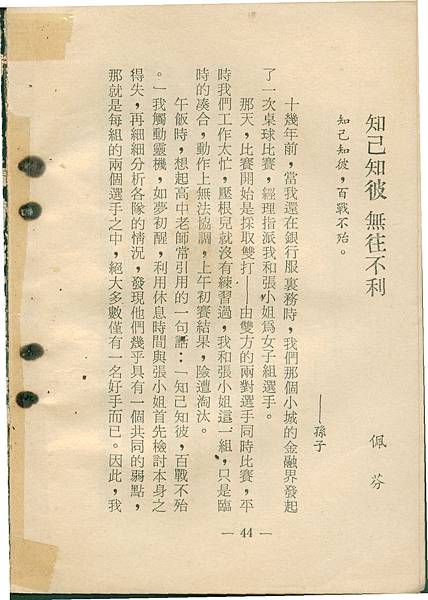 知己知彼 無往不利
佩芬
知己知彼，百戰不殆。
——孫子
十幾年前，當我還在銀行服裏務時，我們那個小城的金融界發起
了一次桌球比賽，經理指派我和張小姐爲女子組選手。
那天，比賽開始是採取雙打——由雙方的兩對選手同時比賽，平
時我們工作太忙，壓根兒就沒有練習過，我和張小姐這一組，只是臨
時的湊合，動作上無法協調，上午初賽結果，險遭淘汰。
午飯時，想起高中老師常引用的一句話：「知己知彼，百戰不殆
。」我觸動靈機，如夢初醒，利用休息時間與張小姐首先檢討本身之
得失，再細細分析各隊的情況，發現他們幾乎具有一個共同的弱點，
那就是每組的兩個選手之中，絕大多數僅有一名好手而已。因此，我
— 44 —